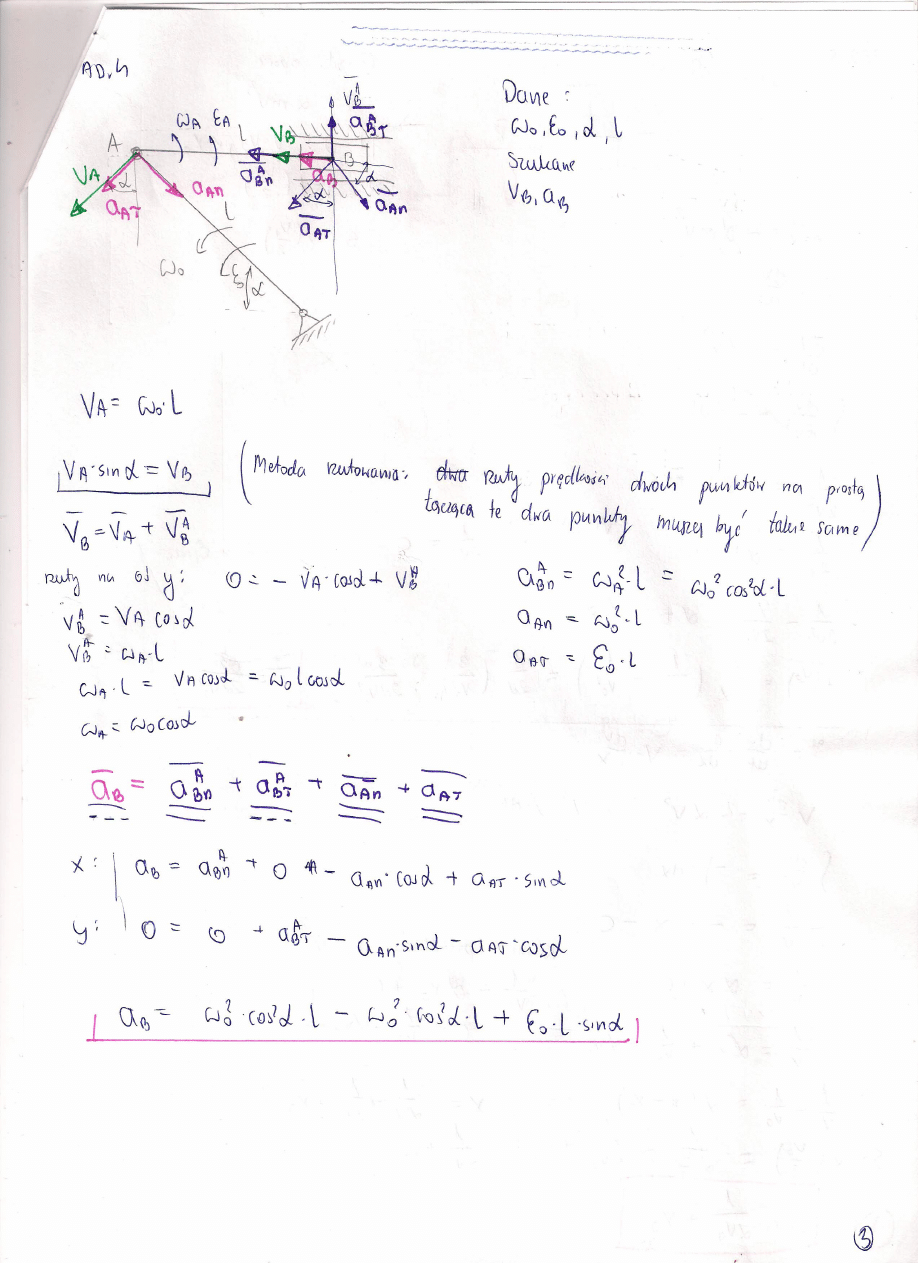 AD.4
Dane :
ω₀, ε₀, α, l
Szukane
V_B, a_B
A
V_A
α
a_AT
a_An
ω_A ε_A
l
V_B
a_Bn^A
V_B^A
a_BT^A
B
a_B
α
α
a_AT
a_An
l
ω₀
ε₀
α
V_A = ω₀·l
V_A·sinα = V_B
(Metoda rzutowania: dwa rzuty prędkości dwóch punktów na prostą
łączącą te dwa punkty muszą być takie same)
V_B = V_A + V_B^A
rzuty na oś y: 0 = - V_A·cosα + V_B^A
V_B^A = V_A cosα
V_B^A = ω_A·l
ω_A·l = V_A cosα = ω₀ l cosα
ω_A = ω₀ cosα
a_Bn^A = ω_A²·l = ω₀² cos²α·l
a_An = ω₀²·l
a_AT = ε₀·l
a_B = a_Bn^A + a_BT^A + a_An + a_AT
x: | a_B = a_Bn^A + 0 - a_An·cosα + a_AT·sinα
y: | 0 = 0 + a_BT^A - a_An·sinα - a_AT·cosα
a_B = ω₀²·cos²α·l - ω₀²·cos²α·l + ε₀·l·sinα
3